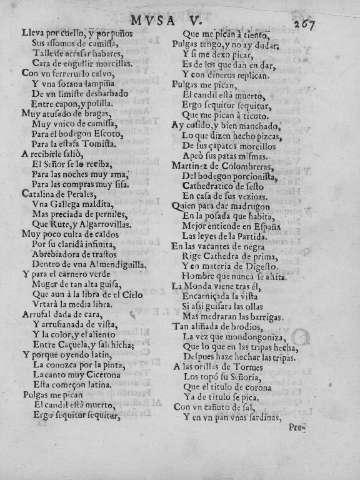 MVSA V.
267
Lleva por cuello, y por puños
Sus assomos de camissa,
Talle de arrasar habares,
Cara de engullir morcillas.
Con vn ferreruelo calvo,
Y vna sotana lampiña
De vn limiste desbarbado
Entre capon, y polilla.
Muy atusado de bragas,
Muy vnico de camissa,
Para el bodegon Escoto,
Para la estafa Tomista.
A recibirle saliò,
El Señor se lo reciba,
Para las noches muy ama,
Para las compras muy sisa.
Catalina de Perales,
Vna Gallega maldita,
Mas preciada de perniles,
Que Rute, y Algarrovillas.
Muy poco culta de caldos
Por su claridà infinita,
Abrebiadora de trastos
Dentro de vna Almendiguilla.
Y para el carnero verde
Muger de tan alta guisa,
Que aun à la libra de el Cielo
Vrtarà la media libra.
Arrufaldada de cara,
Y arrufianada de vista,
Y la color, y el aliento
Entre Caçuela, y salchicha;
Y porque oyendo latin,
La conozca por la pinta,
La canto muy Cicerona
Esta començon latina.
Pulgas me pican
El candil està muerto,
Ergo sequitur sequitur,
Que me pican à tiento,
Pulgas tengo, y no ay dudar,
Y si me dexo picar,
Es de los que dan en dar,
Y con dineros replican.
Pulgas me pican,
El candil està muerto,
Ergo sequitur sequitur,
que me pican à ticoto.
Ay cosido, y bien manchado,
Lo que dizen hecho pizcas,
De sus çapatos morcillos
Apeò sus patas mismas.
Martinez de Colombreras,
Del bodegon porcionista,
Cathedratico de sesto
En casa de sus vezinas.
Quien para dar madrugon
En la posada que habita,
Mejor entiende en España
Las leyes de la Partida.
En las vacantes de negra
Rige Cathedra de prima,
Y en materia de Digesto.
Hombre que nunca se ahita.
La Monda viene tras èl,
Encanijada la vista
Si assi guisara las ollas
Mas medraran las barrigas.
Tan aliñada de brodios,
La vez que mondongoniza,
Que lo que en las tripas hecha,
Despues haze hechar las tripas.
A las orillas de Tormes
Los topò su Señoria,
Que el titulo de corona
Ya de titulo se pica.
Con vn cañuto de sal,
Y en vn pan vnas sardinas,
Pre-